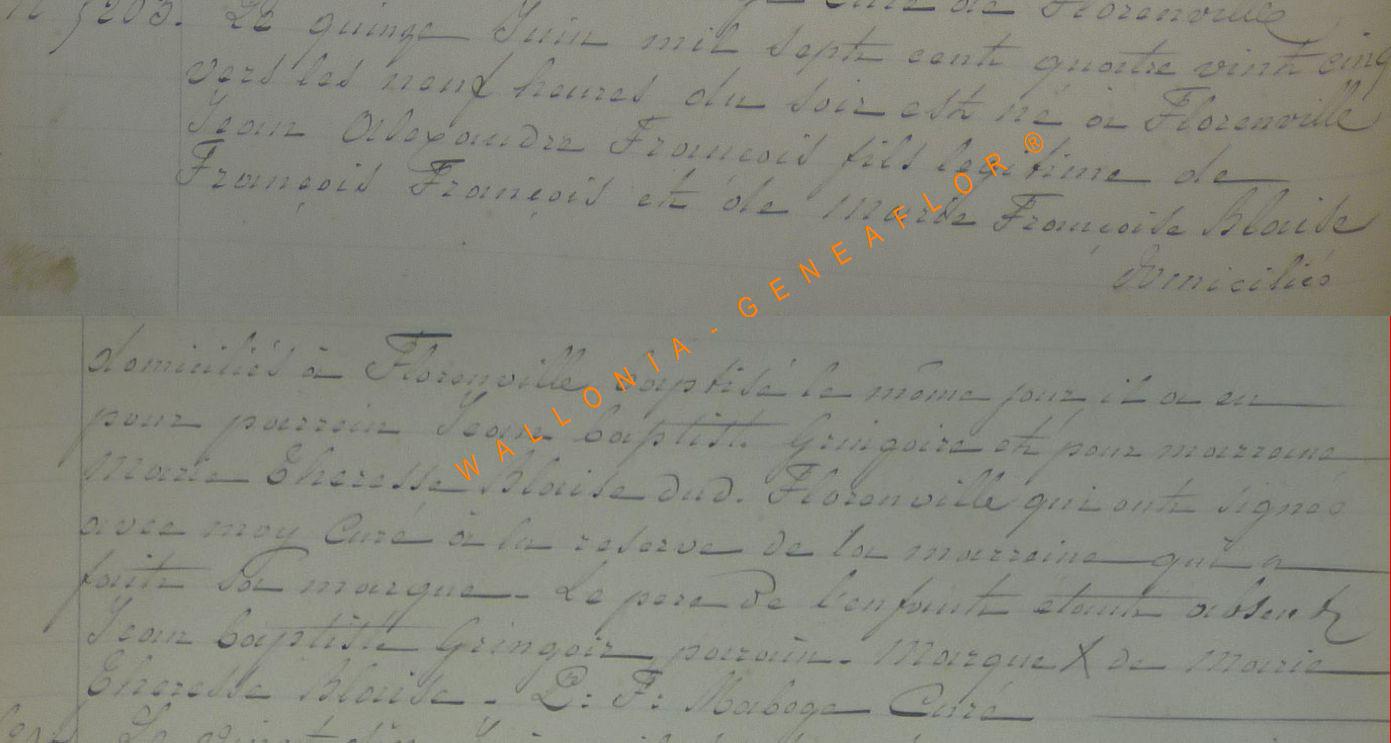 curé de Florenville
n 5203. Le quinze Juin mil sept cent quatre vint cinq
vers les neuf heures du soir est né à Florenville
Jean Alexandre François fils legitime de
François François et de Marie Françoise Blaise
Domiciliés
domiciliés à Florenville baptisé le même jour il a eu
pour parrein Jean baptiste Gringoire et pour marreine
Marie Theresse Blaise dud. Florenville qui ont signés
avec moy Curé à la reserve de la marreine qui a
fait sa marque - Le pere de l'enfant etant absent
Jean baptiste Gringoir parain - Marque X de Marie
Theresse Blaise - P: F: Maboge Curé
WALLONIA - GENEAFLOR ®